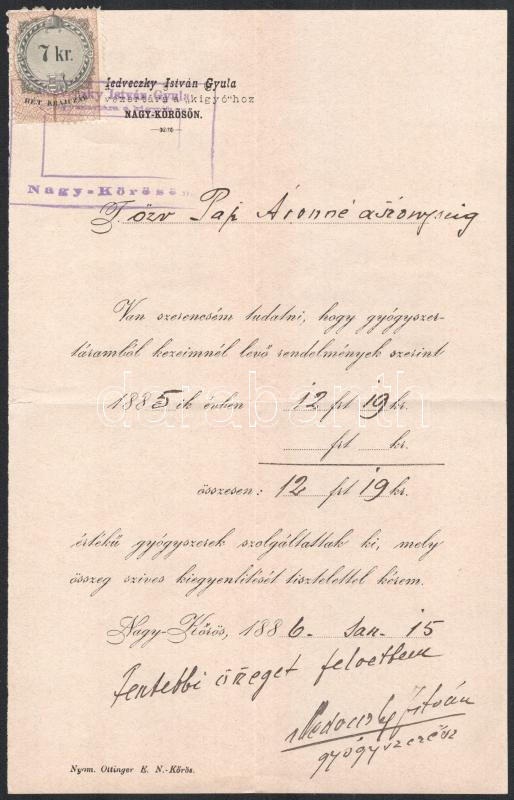 7 kr.
HÉT KRAJCZÁR
Medveczky István Gyula
"kigyó"hoz
NAGY-KŐRÖSÖN.
István Gyula
Nagy-Kőrösön
özv Pap Áronné
Van szerencsém tudatni, hogy gyógyszer-
táramból kezeimnél levő rendelmények szerint
1885ik évben 12 frt 19 kr.
frt kr.
összesen: 12 frt 19 kr.
értékü gyógyszerek szolgáltattak ki, mely
összeg szives kiegyenlitését tisztelettel kérem.
Nagy-Kőrös, 1886. Jan. 15
Fentebbi összeget felvettem
Medveczky István
gyógyszerész
Nyom. Ottinger E. N.-Kőrös.
darabanth